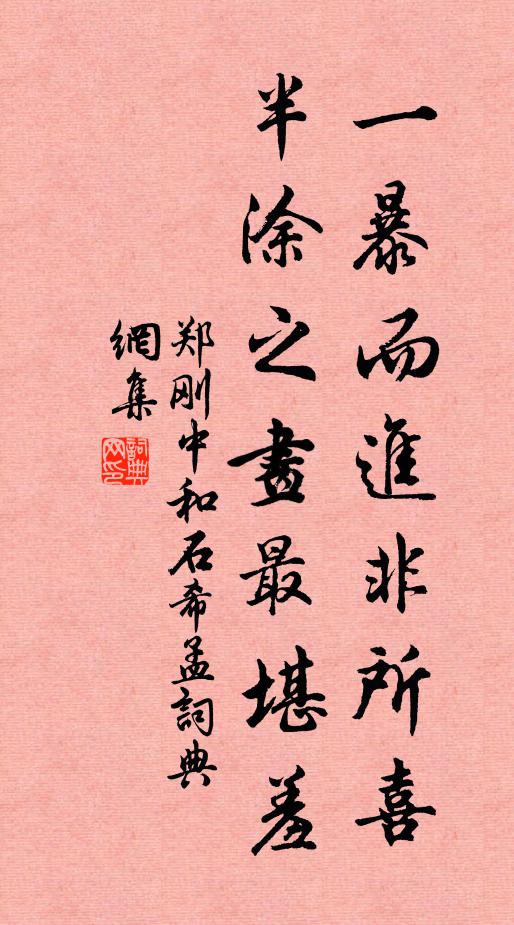 一暴而進非所喜
半涂之畫最堪羞
郑刚中和石希孟詞典
網集
詞典
网印